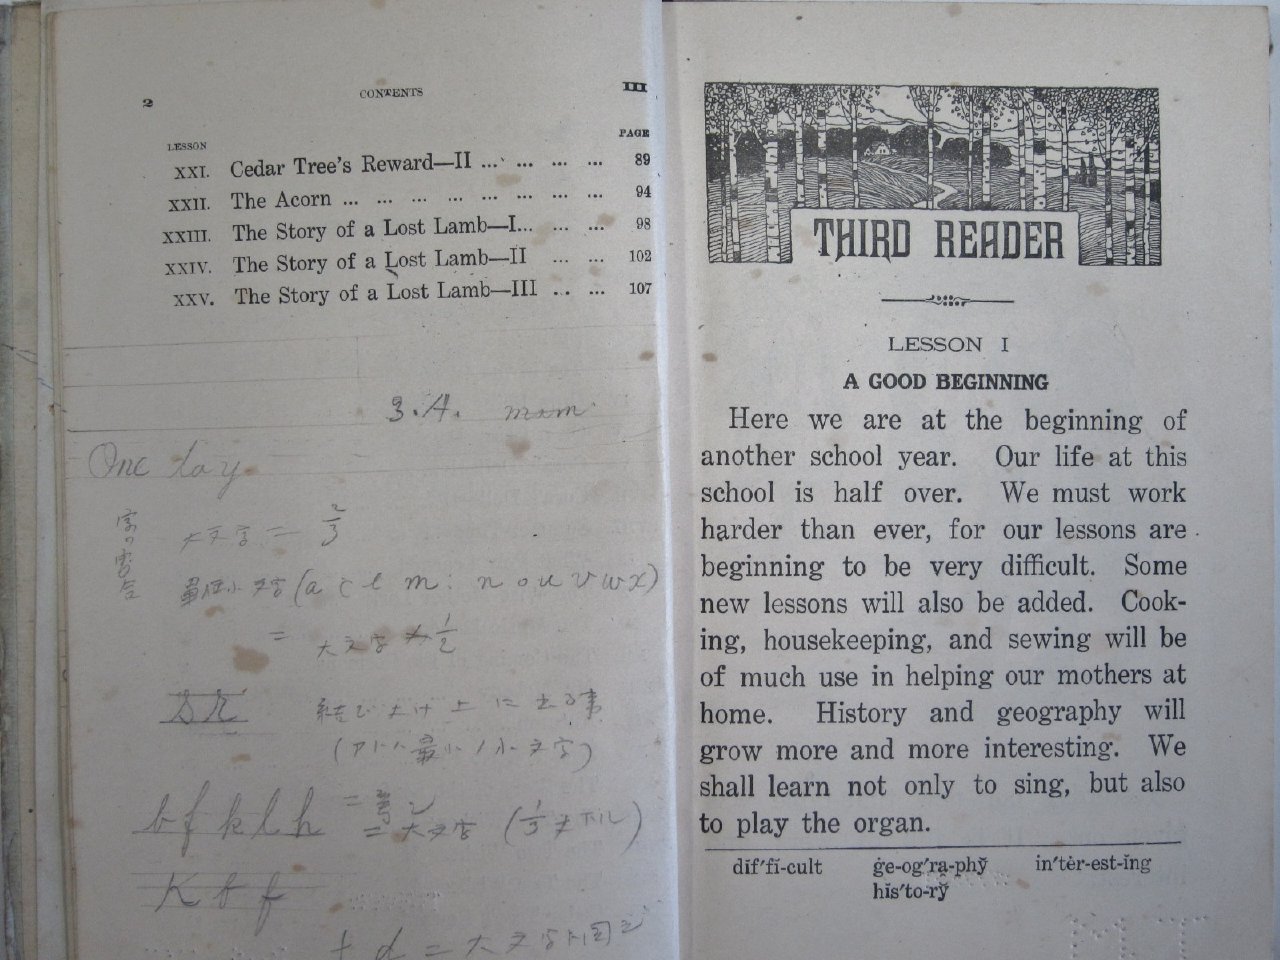 2 CONTENTS III
LESSON PAGE
XXI. Cedar Tree's Reward—II ... ... ... ... 89
XXII. The Acorn ... ... ... ... ... ... ... ... 94
XXIII. The Story of a Lost Lamb—I... ... ... 98
XXIV. The Story of a Lost Lamb—II ... ... 102
XXV. The Story of a Lost Lamb—III ... ... 107
3.A.
One day
大文字 = 2/3
小文字 (a c e m : n o u v w x)
= 大文字 1/2
s r 結び 上 に 出る事
最小ノ小文字)
b f k l h = 大文字 (1/3
K b f
t d = 大文字
THIRD READER
LESSON I
A GOOD BEGINNING
Here we are at the beginning of
another school year. Our life at this
school is half over. We must work
harder than ever, for our lessons are
beginning to be very difficult. Some
new lessons will also be added. Cook-
ing, housekeeping, and sewing will be
of much use in helping our mothers at
home. History and geography will
grow more and more interesting. We
shall learn not only to sing, but also
to play the organ.
dĭf′fĭ-cult ġe-og′rạ-phy̆ in′tėr-est-ĭng
hĭs′to-ry̆